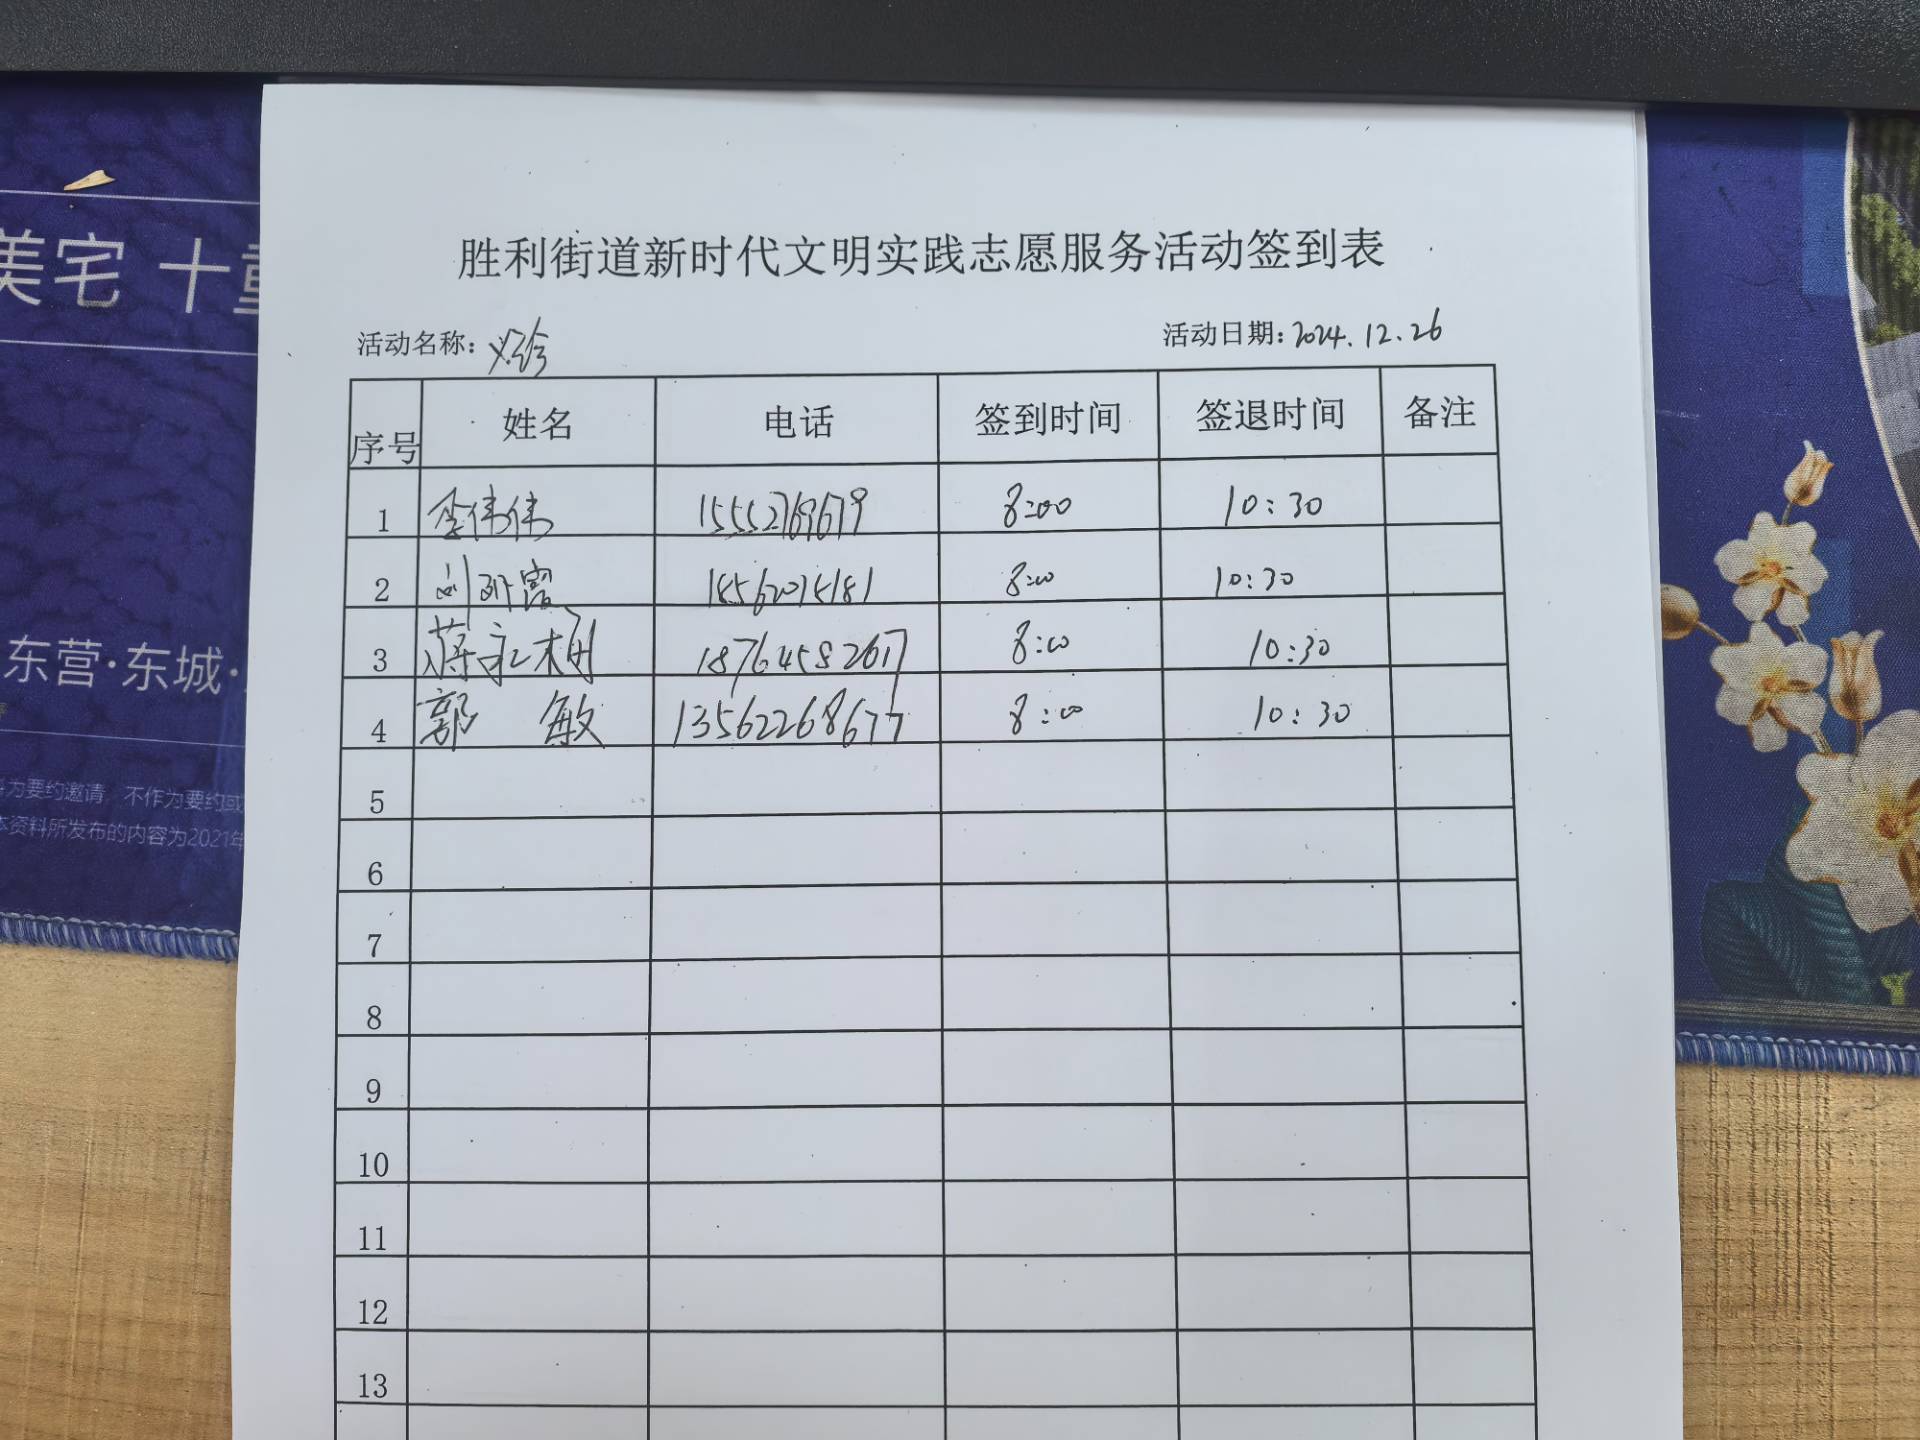 美宅 十
东营·东城·
为要约邀请,不作为要约或
本资料所发布的内容为2021年
胜利街道新时代文明实践志愿服务活动签到表
活动名称:义诊 活动日期:2024.12.26
序号 姓名 电话 签到时间 签退时间 备注
1 李伟伟 15552769679 8:00 10:30
2 刘 8:00 10:30
3 蒋永 18764582617 8:00 10:30
4 郭敏 13562268677 8:00 10:30
5
6
7
8
9
10
11
12
13